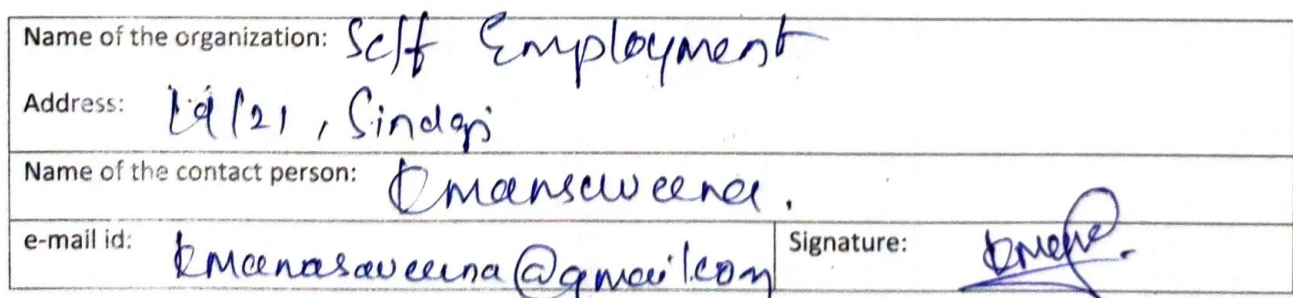 Name of the organization: Self Employment
Address: 19/21, Sindgi
Name of the contact person: kmansaveena.
e-mail id: kmanasaveena@gmail.com Signature: